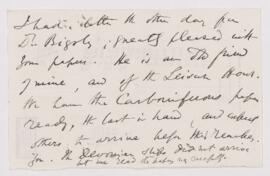 I had a letter the other day from
Dr Bigsby, greatly pleased with
your paper. He is an old friend
of mine, and of the
We have the Carboniferous paper
ready, the last in hand, and expect
others to arrive before this reaches
you. The Devonian slips did not arrive
but we read the